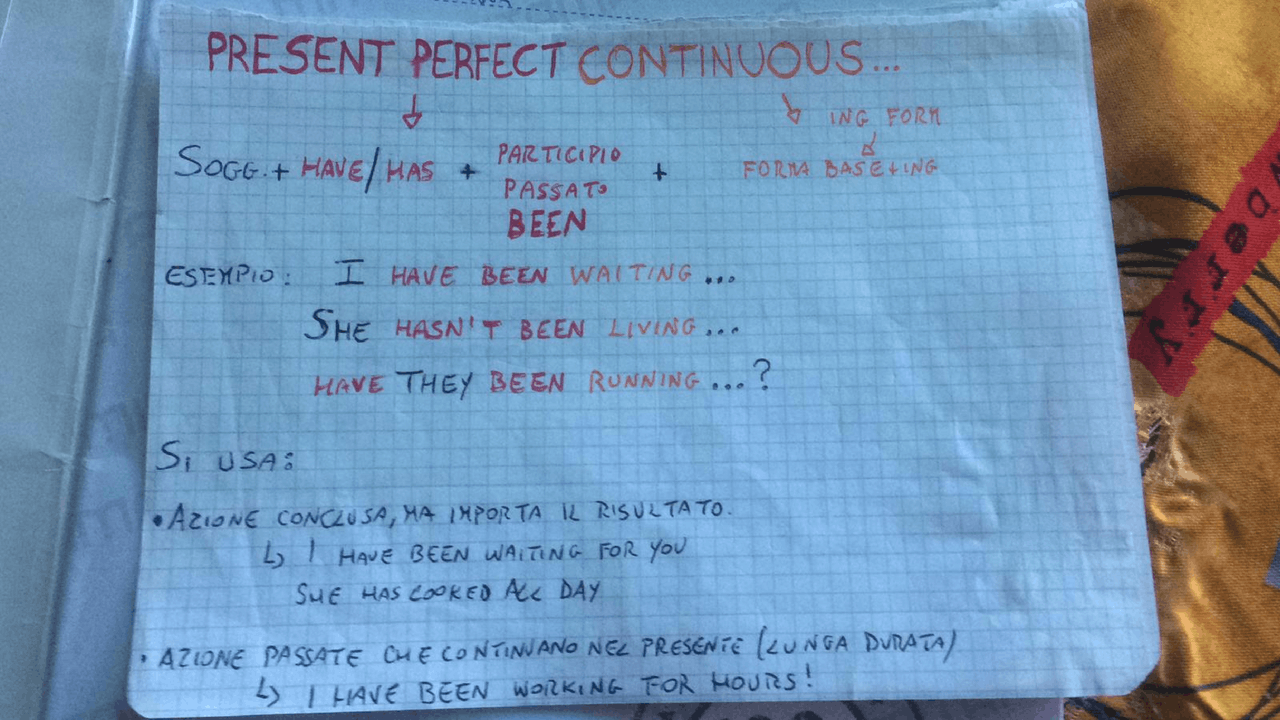 PRESENT PERFECT CONTINUOUS...
ING FORM
SOGG. + HAVE/HAS + PARTICIPIO PASSATO BEEN + FORMA BASE+ING
ESEMPIO: I HAVE BEEN WAITING...
SHE HASN'T BEEN LIVING...
HAVE THEY BEEN RUNNING...?
SI USA:
•AZIONE CONCLUSA, MA IMPORTA IL RISULTATO.
↳ I HAVE BEEN WAITING FOR YOU
SHE HAS COOKED ALL DAY
• AZIONE PASSATE CHE CONTINUANO NEL PRESENTE (LUNGA DURATA)
↳ I HAVE BEEN WORKING FOR HOURS!